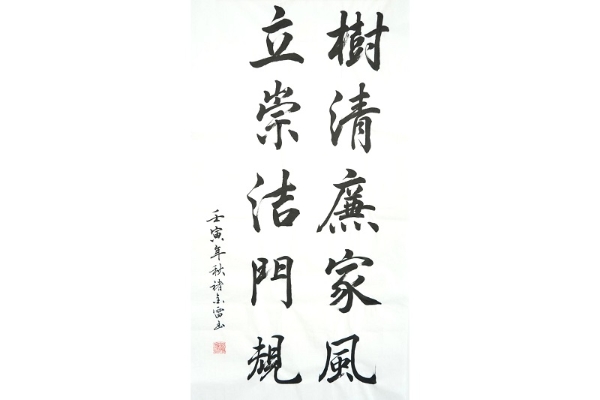 樹清廉家風
立崇洁門規
壬寅年秋诸